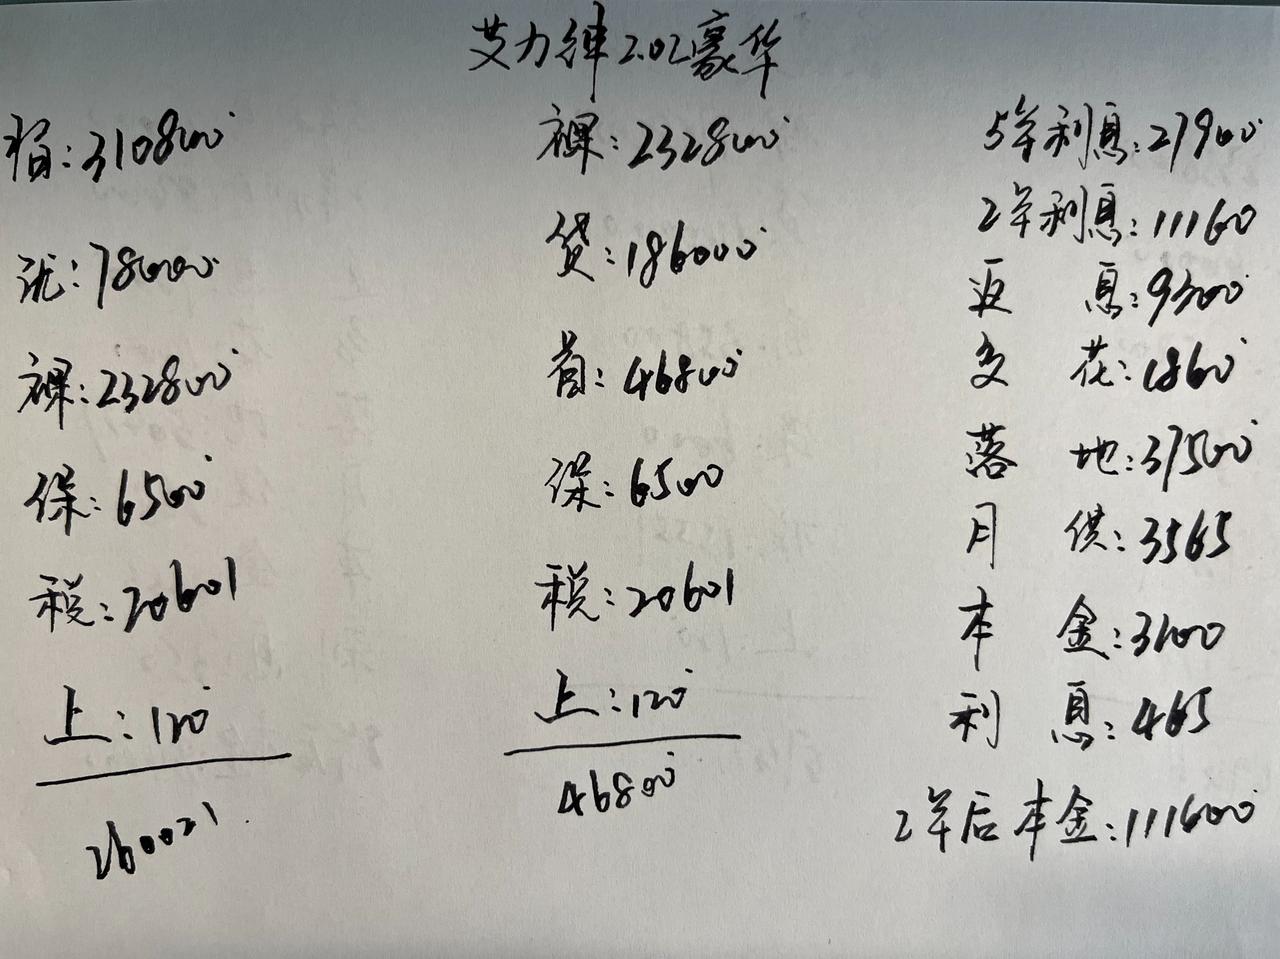 艾力绅2.0L豪华
指:310800
优:78000
裸:232800
保:6500
税:20601
上:120
260021
裸:232800
贷:186000
首:46800
保:6500
税:20601
上:120
46800
5年利息:27900
2年利息:11160
返息:9300
多花:1860
落地:37500
月供:3565
本金:3100
利息:465
2年后本金:111600